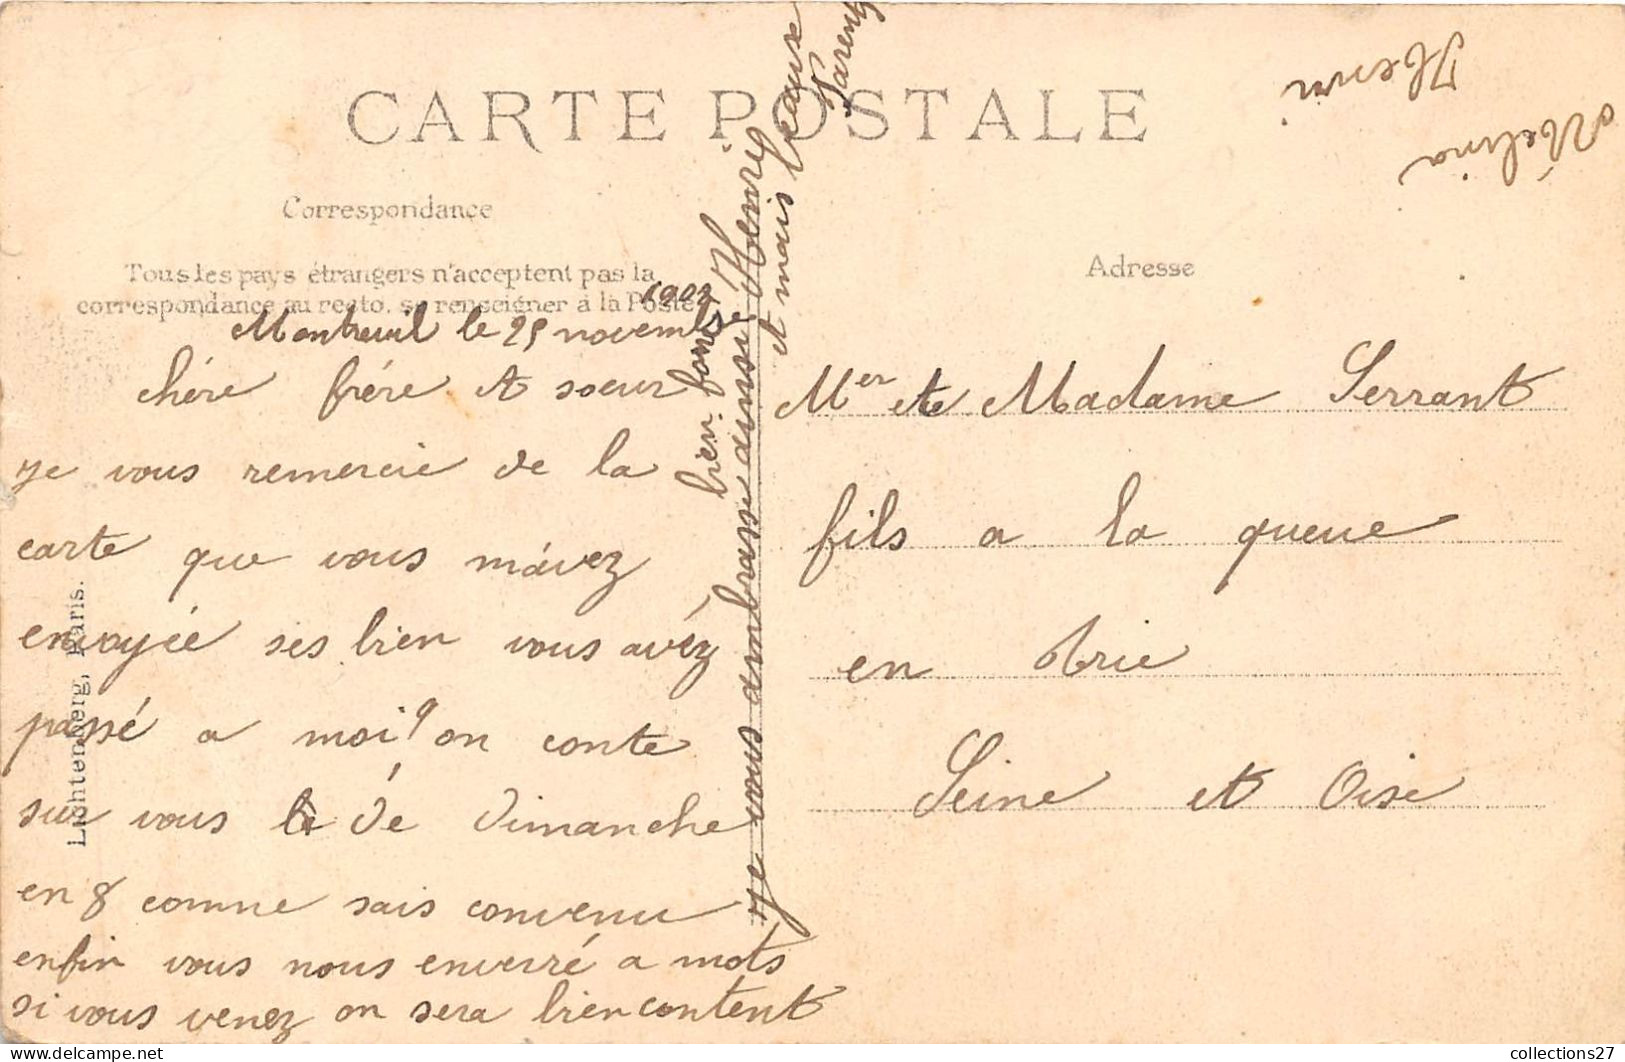 CARTE POSTALE
Correspondance
Tous les pays étrangers n'acceptent pas la
correspondance au recto, se renseigner à la Poste
Adresse
1902
Montreuil le 25 novembre
chére frére et soeur
je vous remercie de la
carte que vous m'avez
envoyée ses bien vous avéz
passé a moi? on conte
sur vous de dimanche
en 8 comme sais convenu
enfin vous nous enverré a mots
si vous venez on sera bien content
bien
je vous ambrasse ainsi Henri
et mais beaux
Parents
Mer et Madame Serrant
fils a la queue
en brie
Seine et Oise
Henri
Mélina
Lichtenberg, Paris.
collections27